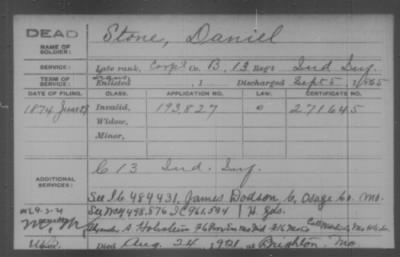 DEAD
NAME OF SOLDIER: Stone, Daniel
SERVICE: Late rank, Corpl Co. B, 13 Reg't Ind Inf.
TERM OF SERVICE: Enlisted , 1 Discharged Sept 5, 1865
DATE OF FILING. CLASS. APPLICATION NO. LAW. CERTIFICATE NO.
1874 June Invalid, 193,827 271,645
Widow,
Minor,
ADDITIONAL SERVICES: C 13 Ind. Inf.
See I.C. 484431, James Dodson, C, Osage Co. Mo.
498,876 961,894 H. Gds.
A Holstein
Died Aug. 24, 1921 at Brighton, Mo.